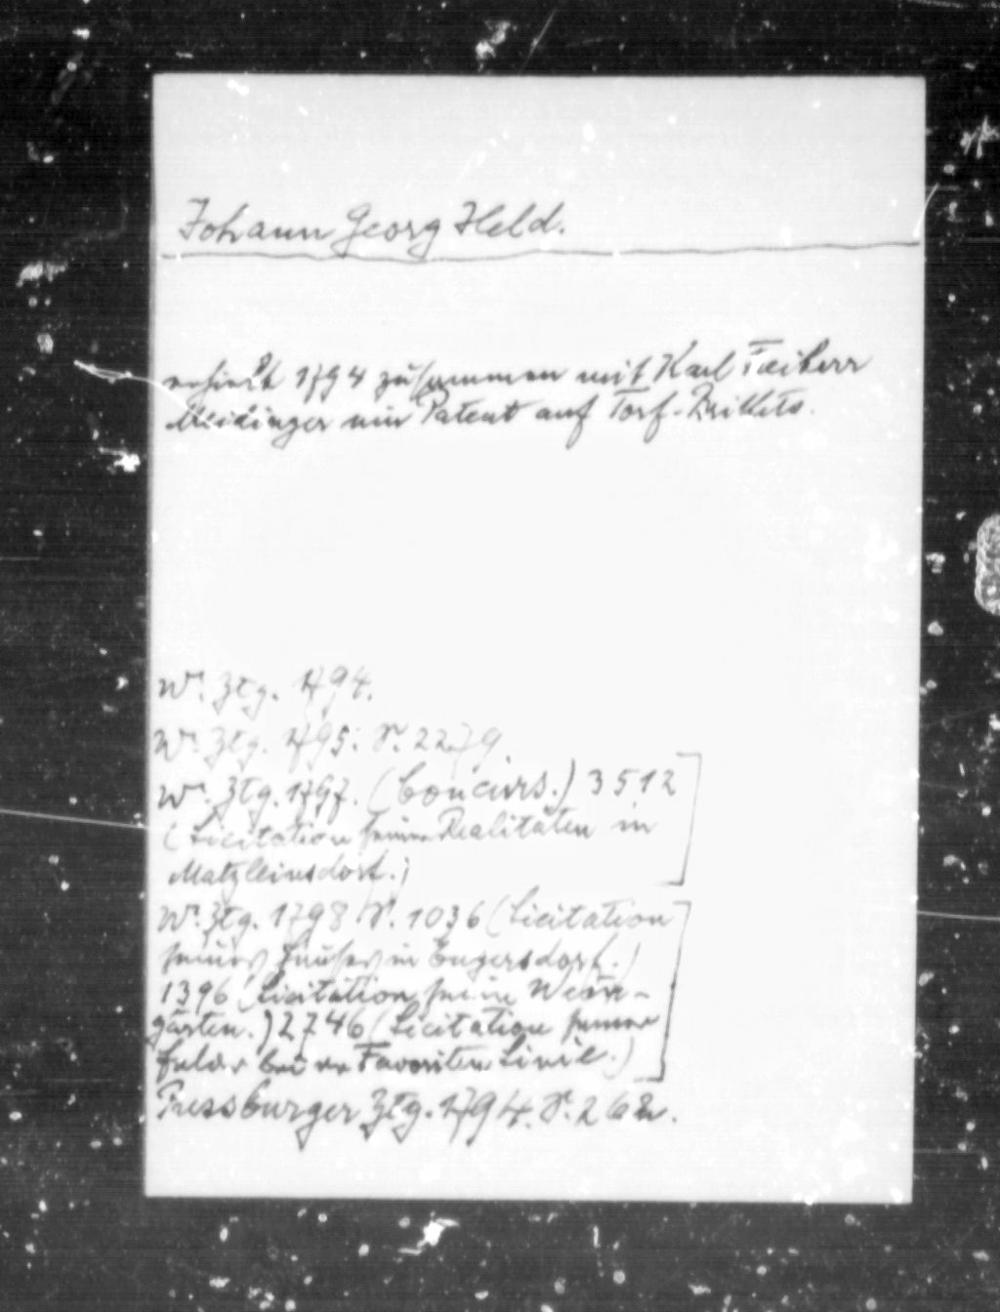 Johann Georg Held.
erhielt 1794 zusammen mit Karl Freiherr
Meidinger ein Patent auf Torf-Brikets.
W. Ztg. 1794.
W. Ztg. 1795. S. 2279
W. Ztg. 1797. (Concurs.) 3512
(Licitation seiner Realitäten in
Matzleinsdorf.)
W. Ztg. 1798 S. 1036 (Licitation
seines Hauses in Engersdorf.)
1396 (Licitation seine Wein-
gärten.) 2746 (Licitation seiner
Felder bei der Favoriten Linie.)
Pressburger Ztg. 1794. S. 262.